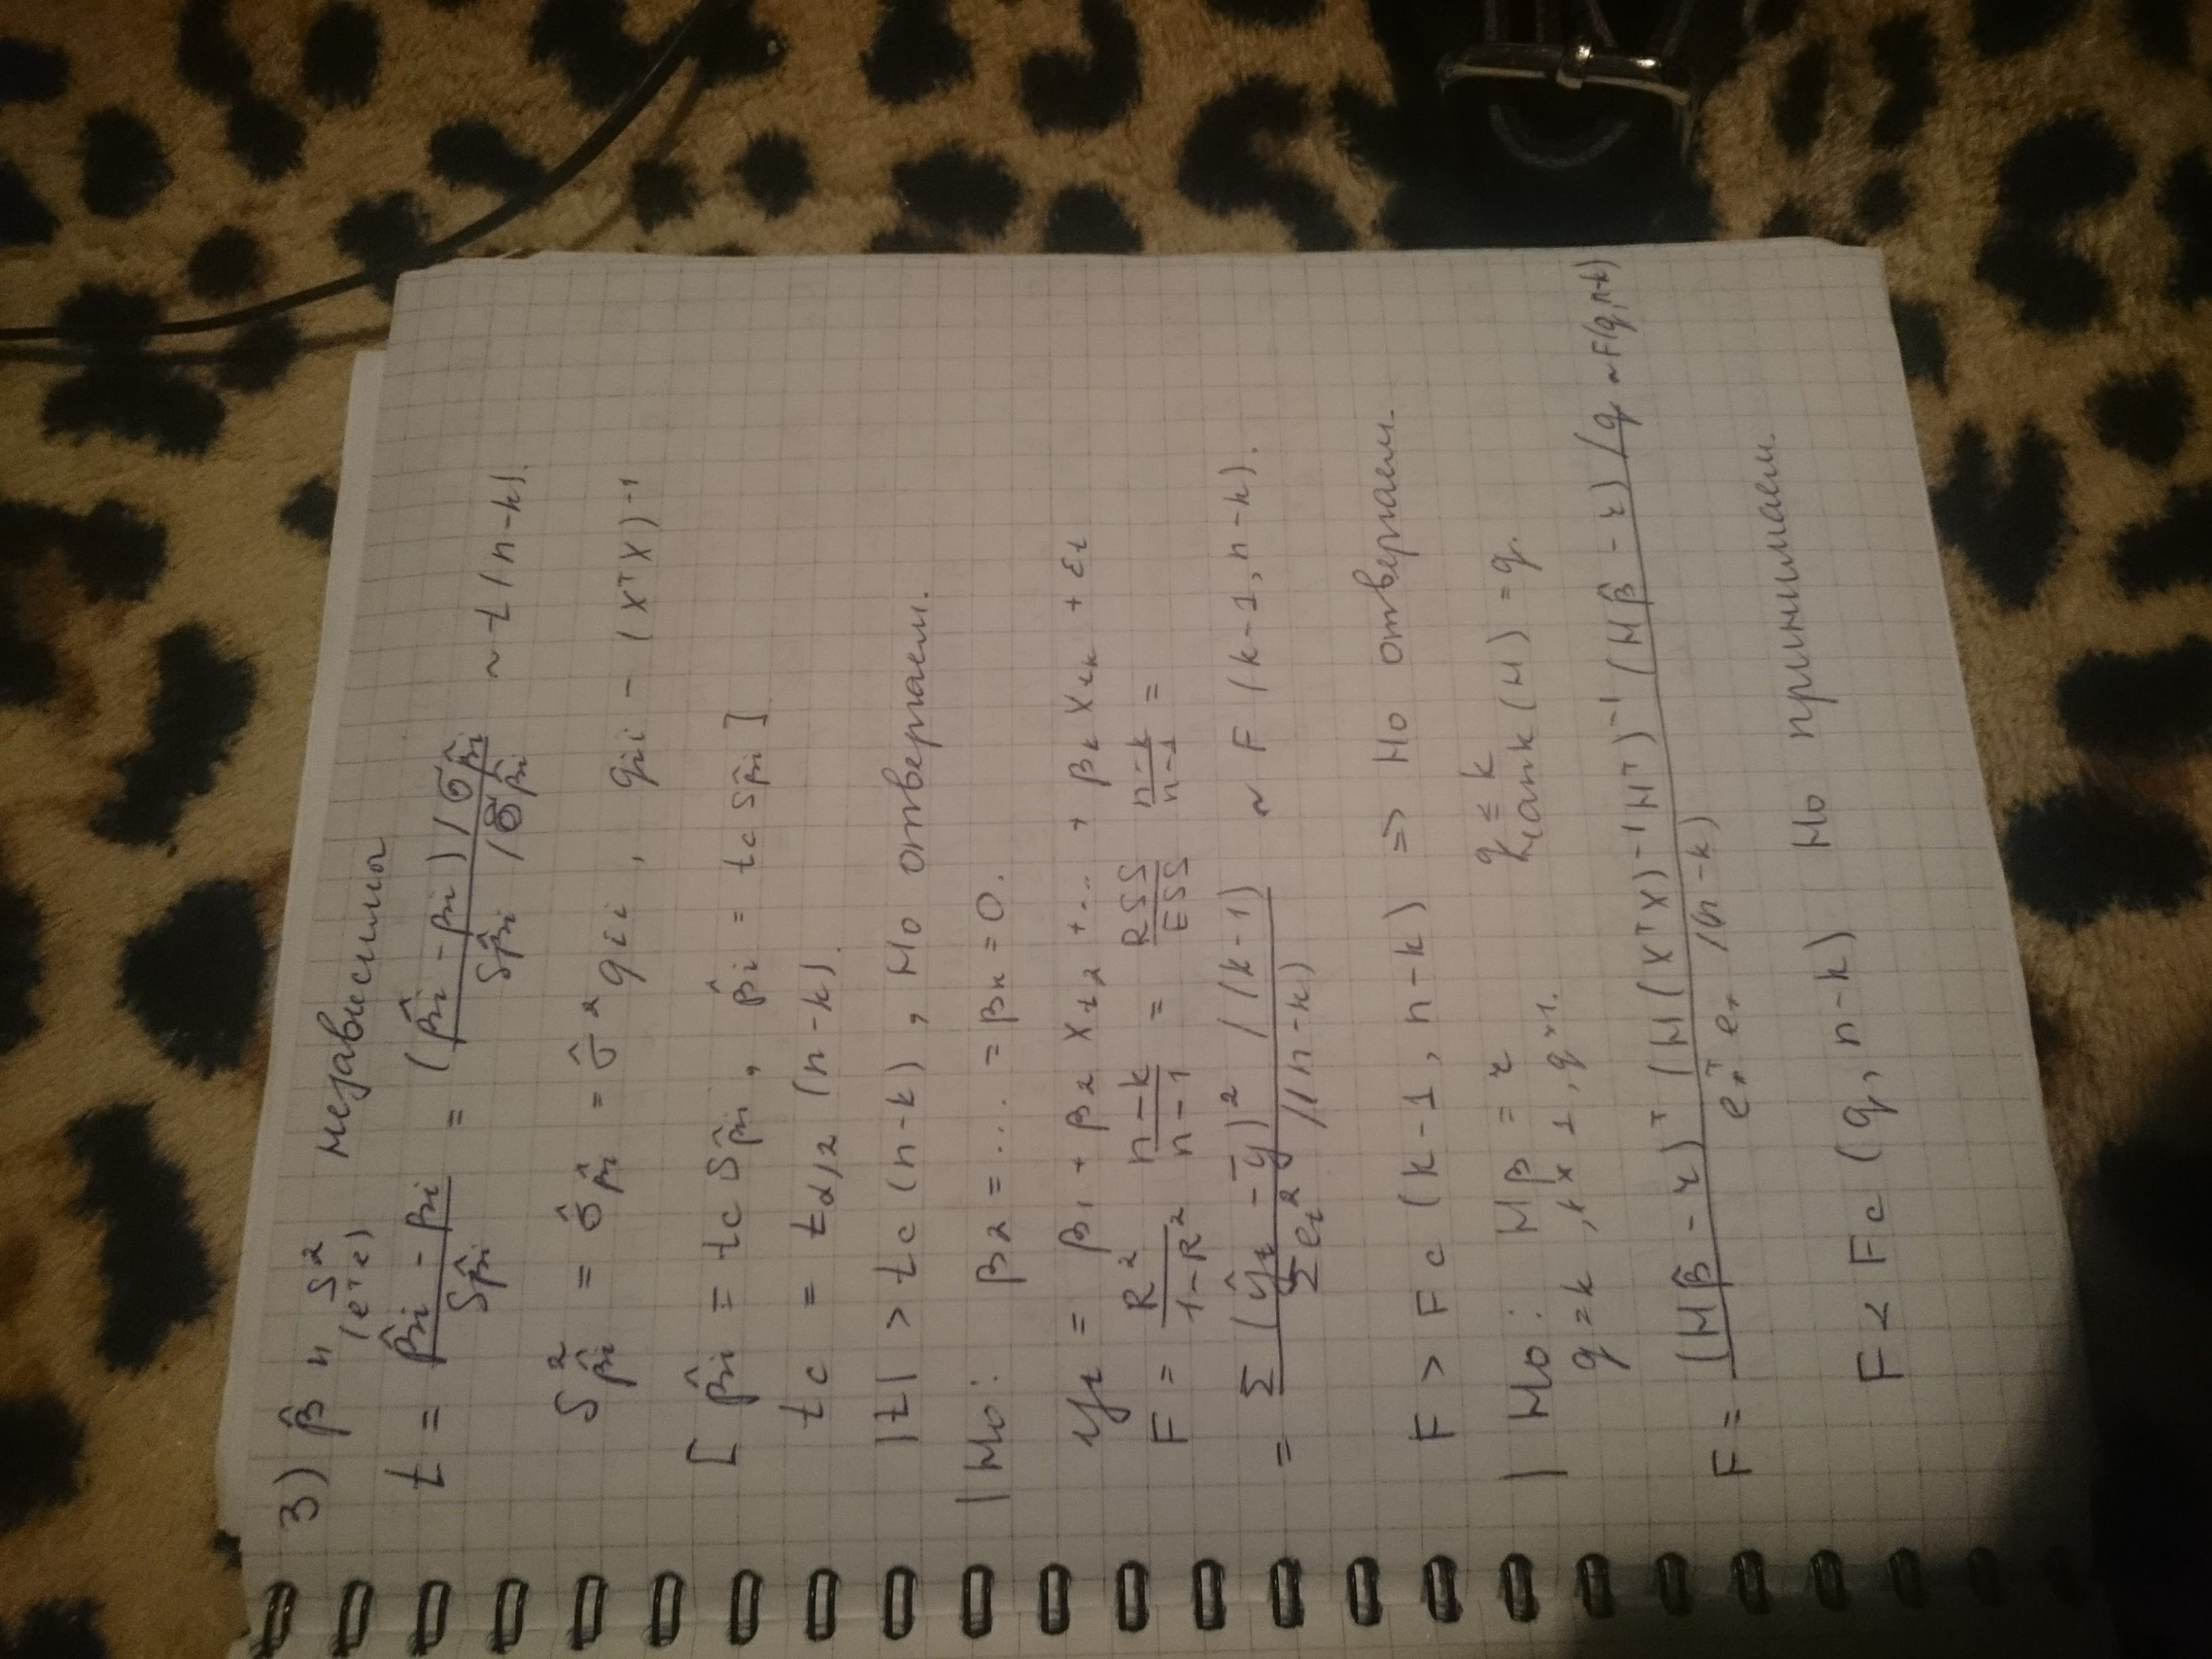 3) β̂ и s² независимы
(eᵀe)
t = (β̂i - βi) / Sβ̂i = ((β̂i - βi) / σβ̂i) / (Sβ̂i / σβ̂i) ~ t(n-k).
S²β̂i = σ̂²β̂i = σ̂² qii , qii - (XᵀX)⁻¹
[ β̂i = tc Sβ̂i , β̂i = tc Sβ̂i ]
tc = tα/2 (n-k).
|t| > tc (n-k) , H0 отвергаем.
| H0: β2 = ... = βk = 0.
yt = β1 + β2 Xt2 + ... + βk Xtk + εt
F = R² / (1-R²) (n-k)/(n-1) = RSS/ESS (n-k)/(n-1) =
= (Σ(ŷt - ȳ)² / (k-1)) / (Σet² / (n-k)) ~ F (k-1, n-k).
F > Fc (k-1, n-k) => H0 отвергаем.
| H0: Hβ = r q ≤ k
q = k , k x 1 , q x 1. rank(H) = q.
F = ((Hβ̂ - r)ᵀ (H(XᵀX)⁻¹Hᵀ)⁻¹ (Hβ̂ - r) / q) / (eᵀe / (n-k)) ~ F(q, n-k)
F < Fc (q, n-k) H0 принимаем.